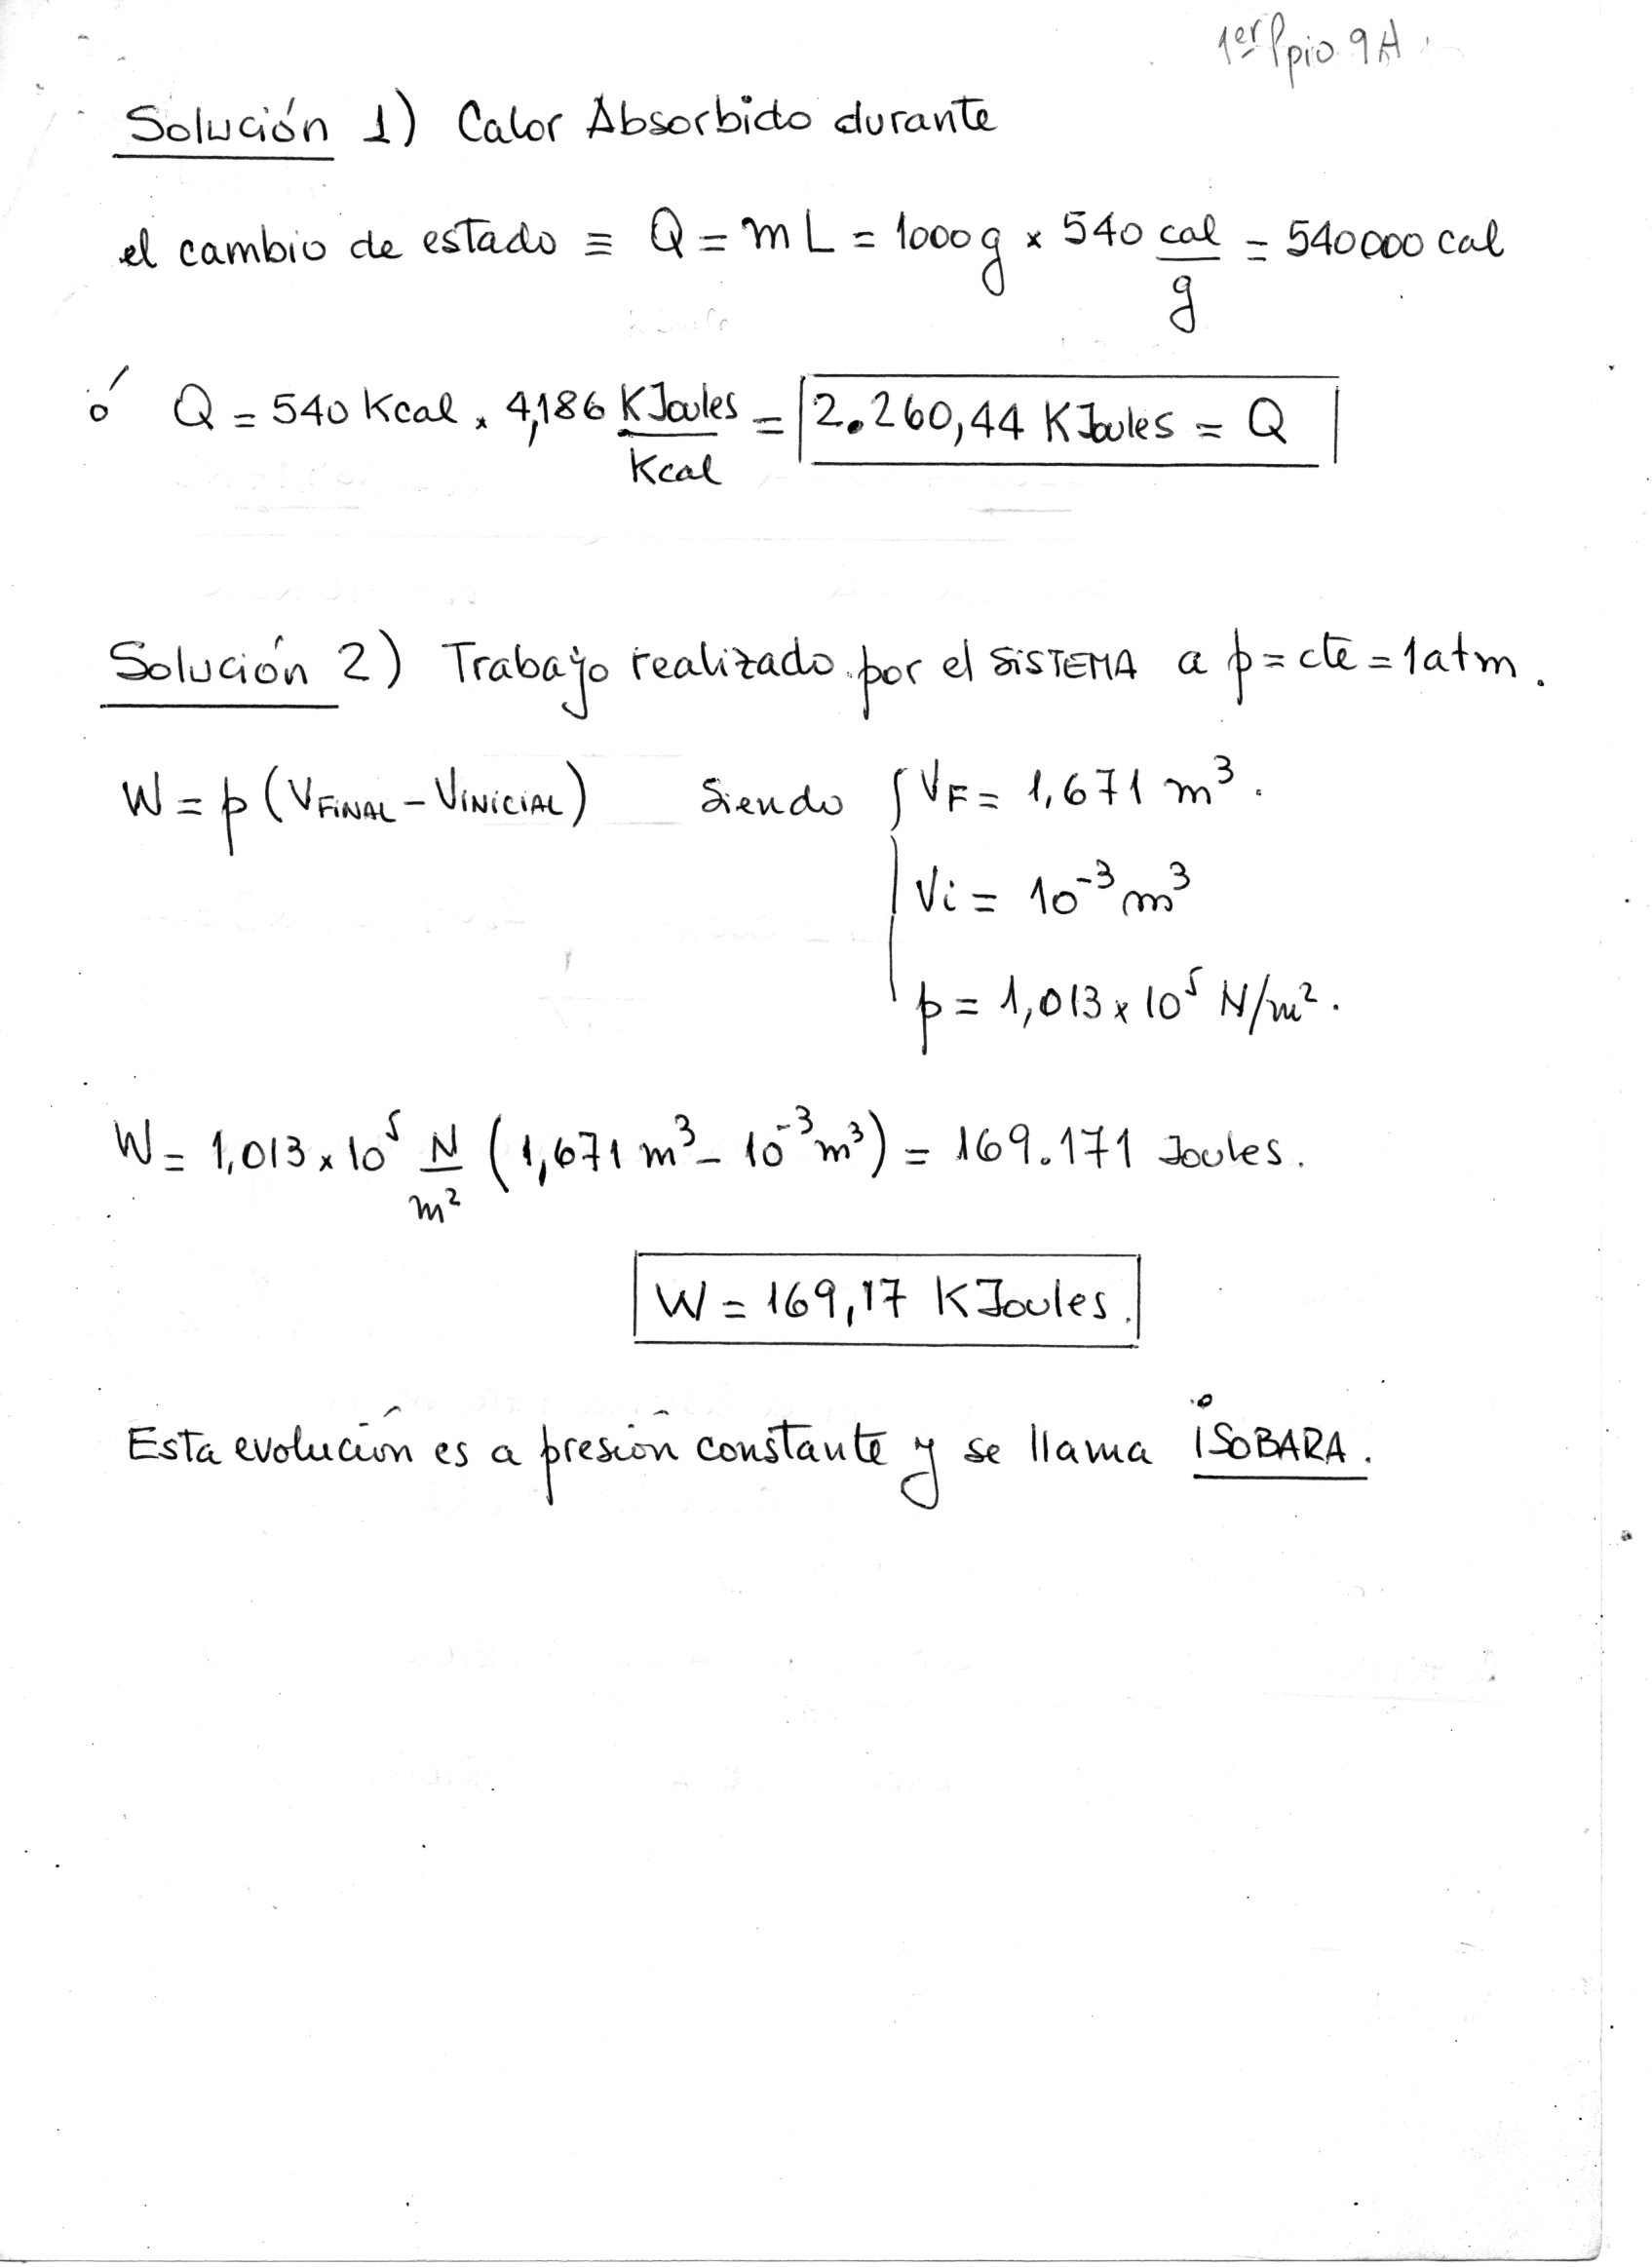 1er Ppio 9A
Solución 1) Calor Absorbido durante
el cambio de estado ≡ Q = m L = 1000 g × 540 cal/g = 540000 cal
ó Q = 540 Kcal × 4,186 KJoules/Kcal = 2.260,44 KJoules = Q
Solución 2) Trabajo realizado por el SISTEMA a p = cte = 1 atm.
W = p (VFINAL - VINICIAL) Siendo { VF = 1,671 m³.
Vi = 10⁻³ m³
p = 1,013 × 10⁵ N/m².
W = 1,013 × 10⁵ N/m² (1,671 m³ - 10⁻³ m³) = 169.171 Joules.
W = 169,17 KJoules.
Esta evolución es a presión constante y se llama ISOBARA.